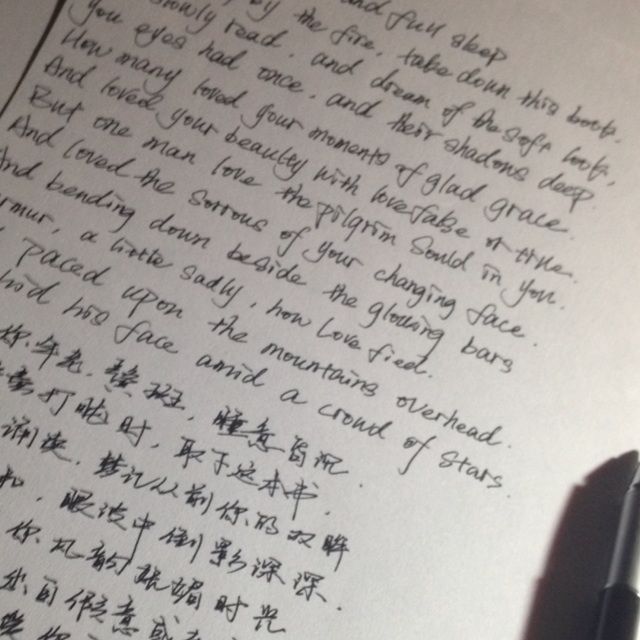 and full sleep
by the fire, take down this book.
slowly read, and dream of the soft look,
you eyes had once, and their shadows deep.
How many loved your moments of glad grace.
And loved your beauty with love false or true.
But one man love the pilgrim Sould in you.
And loved the sorrous of your changing face.
And bending down beside the glowing bars
rmur, a little sadly, how love fled.
paced upon the mountains overhead.
hid his face amid a crowd of stars.
你年老,鬓斑,睡意昏沉
打盹时,取下这本书.
诵读,梦记从前你的双眸
和,眼波中倒影深深.
你风韵妩媚时光
出自假意或